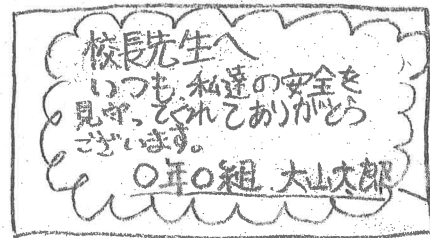 校長先生へ
いつも、私達の安全を
見守ってくれてありがとう
ございます。
○年○組 大山太郎